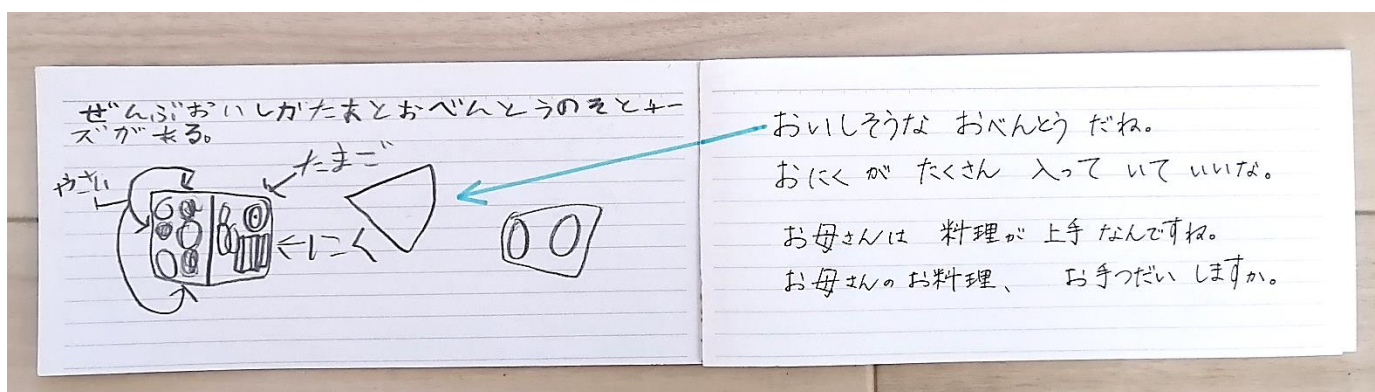 ぜんぶおいしがたまとおべんとうのそとチー
ズがある。
たまご
やさい
にく
おいしそうな おべんとう だね。
おにく が たくさん 入って いて いいな。
お母さんは 料理が 上手 なんですね。
お母さんの お料理、 お手つだい しますか。